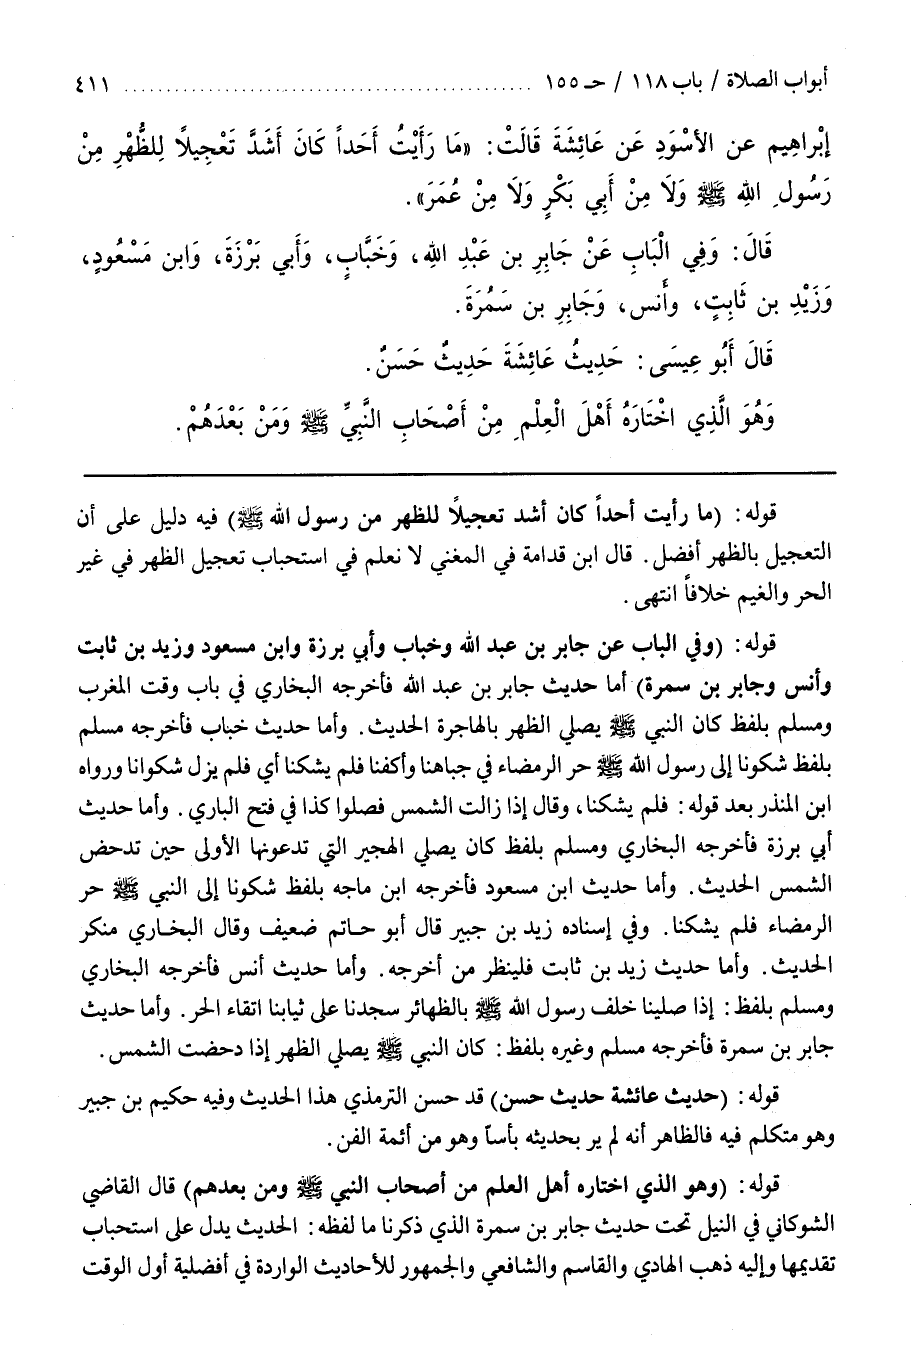 أبواب الصلاة / باب ١١٨ / حـ ١٥٥ ................................................ ٤١١
إبْراهِيم عن الأسْوَدِ عَن عَائِشَةَ قَالَتْ: «مَا رَأَيْتُ أَحَداً كَانَ أَشَدَّ تَعْجِيلاً لِلظُّهْرِ مِنْ
رَسُولِ اللهِ ﷺ وَلَا مِنْ أَبِي بَكْرٍ وَلَا مِنْ عُمَرَ».
قَالَ: وَفِي الْبَابِ عَنْ جَابِرِ بن عَبْدِ اللهِ، وَخَبَّابٍ، وَأَبي بَرْزَةَ، وَابن مَسْعُودٍ،
وَزَيْدِ بن ثَابِتٍ، وأَنس، وَجَابِرِ بن سَمُرَةَ.
قَالَ أَبُو عِيسَى: حَدِيثُ عَائِشَةَ حَدِيثٌ حَسَنٌ.
وَهُوَ الَّذِي اخْتَارَهُ أَهْلَ الْعِلْمِ مِنْ أَصْحَابِ النَّبِيِّ ﷺ وَمَنْ بَعْدَهُمْ.
قوله: (ما رأيت أحداً كان أشد تعجيلاً للظهر من رسول الله ﷺ) فيه دليل على أن
التعجيل بالظهر أفضل. قال ابن قدامة في المغني لا نعلم في استحباب تعجيل الظهر في غير
الحر والغيم خلافاً انتهى.
قوله: (وفي الباب عن جابر بن عبد الله وخباب وأبي برزة وابن مسعود وزيد بن ثابت
وأنس وجابر بن سمرة) أما حديث جابر بن عبد الله فأخرجه البخاري في باب وقت المغرب
ومسلم بلفظ كان النبي ﷺ يصلي الظهر بالهاجرة الحديث. وأما حديث خباب فأخرجه مسلم
بلفظ شكونا إلى رسول الله ﷺ حر الرمضاء في جباهنا وأكفنا فلم يشكنا أي فلم يزل شكوانا ورواه
ابن المنذر بعد قوله: فلم يشكنا، وقال إذا زالت الشمس فصلوا كذا في فتح الباري. وأما حديث
أبي برزة فأخرجه البخاري ومسلم بلفظ كان يصلي الهجير التي تدعونها الأولى حين تدحض
الشمس الحديث. وأما حديث ابن مسعود فأخرجه ابن ماجه بلفظ شكونا إلى النبي ﷺ حر
الرمضاء فلم يشكنا. وفي إسناده زيد بن جبير قال أبو حـاتم ضعيف وقال البخـاري منكر
الحديث. وأما حديث زيد بن ثابت فلينظر من أخرجه. وأما حديث أنس فأخرجه البخاري
ومسلم بلفظ: إذا صلينا خلف رسول الله ﷺ بالظهائر سجدنا على ثيابنا اتقاء الحر. وأما حديث
جابر بن سمرة فأخرجه مسلم وغيره بلفظ: كان النبي ﷺ يصلي الظهر إذا دحضت الشمس.
قوله: (حديث عائشة حديث حسن) قد حسن الترمذي هذا الحديث وفيه حكيم بن جبير
وهو متكلم فيه فالظاهر أنه لم ير بحديثه بأساً وهو من أئمة الفن.
قوله: (وهو الذي اختاره أهل العلم من أصحاب النبي ﷺ ومن بعدهم) قال القاضي
الشوكاني في النيل تحت حديث جابر بن سمرة الذي ذكرنا ما لفظه: الحديث يدل على استحباب
تقديمها وإليه ذهب الهادي والقاسم والشافعي والجمهور للأحاديث الواردة في أفضلية أول الوقت